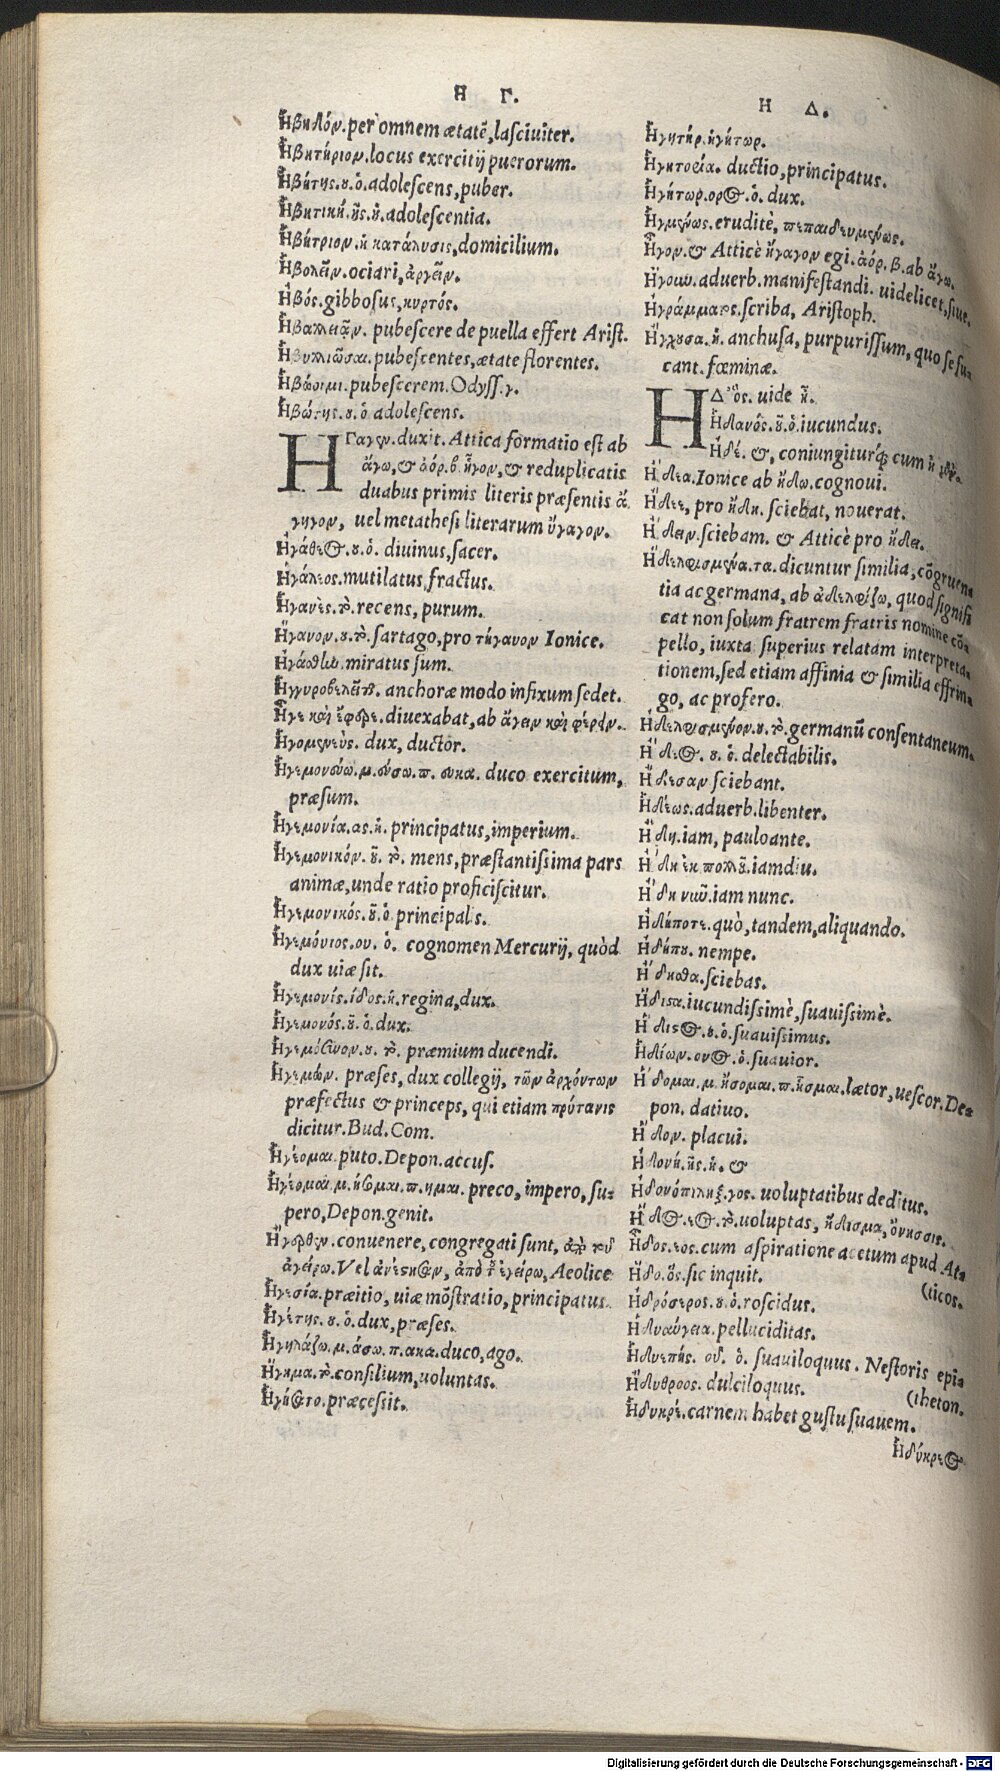 Η Γ.
Ἡβηδόν. per omnem ætatẽ, laſciuiter.
Ἡβητήριον. locus exercitij puerorum.
Ἡβήτης. ου. ὁ. adoleſcens, puber.
Ἡβητική. ῆς. ἡ. adoleſcentia.
Ἡβήτριον. ἡ κατάλυσις, domicilium.
Ἠβολεῖν. ociari, ἀργεῖν.
Ἠβός. gibboſus, κυρτός.
pubeſcere de puella effert Ariſt.
pubeſcentes, ætate florentes.
Ἡβώοιμι. pubeſcerem. Odyſſ. γ.
Ἡβώτης. ου. ὁ adoleſcens.
ΗΓαγεν. duxit. Attica formatio eſt ab
ἄγω, & ἀόρ. β. ἦγον, & reduplicatis
duabus primis literis præſentis ἄ
γηγον, uel metatheſi literarum ἤγαγον.
Ἠγάθεος. ου. ὁ. diuinus, ſacer.
Ἠγάλεος. mutilatus, fractus.
Ἠγανὲς. τὸ. recens, purum.
Ἤγανον. ου. τὸ. ſartago, pro τήγανον Ionice.
Ἠγάσθην. miratus ſum.
anchoræ modo infixum ſedet.
Ἦγε καὶ ἔφερε. diuexabat, ab ἄγειν καὶ φέρειν.
Ἡγομενεὺς. dux, ductor.
Ἡγεμονεύω. μ. εύσω. π. ευκα. duco exercitum,
præſum.
Ἡγεμονία. ας. ἡ. principatus, imperium.
Ἡγεμονικόν. οῦ. τὸ. mens, præſtantiſsima pars
animæ, unde ratio proficiſcitur.
Ἡγεμονικός. οῦ. ὁ principalis.
Ἡγεμόνιος. ου. ὁ. cognomen Mercurij, quòd
dux uiæ ſit.
Ἡγεμονίς. ίδος. ἡ. regina, dux.
Ἡγεμονός. οῦ. ὁ. dux.
Ἡγεμόσυνον. ου. τὸ. præmium ducendi.
Ἡγεμών. præſes, dux collegij, τῶν ἀρχόντων
præfectus & princeps, qui etiam πρύτανις
dicitur. Bud. Com.
Ἡγέομαι. puto. Depon. accuſ.
Ἡγέομαι. μ. ήσομαι. π. ημαι. preco, impero, ſu-
pero, Depon. genit.
Ἤγερθεν. conuenere, congregati ſunt, ἀπὸ τοῦ
ἀγείρω. Vel ἀνέστησαν, ἀπὸ τοῦ ἐγείρω, Aeolice
Ἡγεσία. præitio, uiæ mõſtratio, principatus.
Ἡγέτης. ου. ὁ. dux, præſes.
Ἡγηλάζω. μ. άσω. π. ακα. duco, ago.
Ἥγημα. τὸ. conſilium, uoluntas.
Ἡγήσατο. præceſsit.
Η Δ.
Ἡγητήρ. ἡγήτωρ.
Ἡγητορία. ductio, principatus.
Ἡγήτωρ. ορος. ὁ. dux.
Ἠγμένως. eruditè, πεπαιδευμένως.
Ἦγον. & Atticè ἤγαγον egi. ἀόρ. β. ab ἄγω.
Ἤγουν. aduerb. manifeſtandi. uidelicet, ſiue.
ſcriba, Ariſtoph.
Ἤγχουσα. ἡ. anchuſa, purpuriſſum, quo ſe fu-
cant. fœminæ.
ΗΔ᾽ ὅς. uide ἦ.
Ἡδανός. οῦ. ὁ. iucundus.
Ἠδέ. &, coniungiturq́; cum ἡ μὲν.
Ἤδεα. Ionice ab ἤδω. cognoui.
Ἤδεε, pro ἤδη. ſciebat, nouerat.
Ἤδειν. ſciebam. & Atticè pro ἤδει.
Ἠδελφισμένα. τα. dicuntur ſimilia, cõgruen-
tia ac germana, ab ἀδελφίζω, quod ſignifi
cat non ſolum fratrem fratris nomine cõ-
pello, iuxta ſuperius relatam interpreta-
tionem, ſed etiam affinia & ſimilia effrin-
go, ac profero.
Ἠδελφισμένον. ου. τὸ. germanũ conſentaneum.
Ἥδεος. ου. ὁ. delectabilis.
Ἤδεσαν ſciebant.
Ἡδέως. aduerb. libenter.
Ἤδη. iam, pauloante.
Ἤδη ἐκ πολλοῦ. iamdiu.
Ἤδη νῦν. iam nunc.
Ἠδήποτε. quò, tandem, aliquando.
Ἠδήπου. nempe.
Ἤδησθα. ſciebas.
Ἥδιστα. iucundiſsimè, ſuauiſsimè.
Ἥδιστος. ου. ὁ. ſuauiſsimus.
Ἡδίων. ονος. ὁ. ſuauior.
Ἥδομαι. μ. ἥσομαι. π. ἧσμαι. lætor, ueſcor. De-
pon. datiuo.
Ἧδον. placui.
Ἡδονή. ῆς. ἡ. &
Ἡδονόπληξ. γος. uoluptatibus deditus.
Ἧδος. εος. τὸ. uoluptas, ἥδισμα, ὄνησσις.
Ἧδος. εος. cum aſpiratione acetum apud At-
(ticos.
Ἦδ᾽ ὅς. ſic inquit.
Ἡδρόσερος. ου. ὁ. roſcidus.
Ἡδυαύγεια. pelluciditas.
Ἡδυεπής. οῦ. ὁ. ſuauiloquus. Neſtoris epi-
(theton.
Ἡδυθροος. dulciloquus.
Ἡδυκρέ. carnem habet guſtu ſuauem.
Ἡδύκρεος
Digitalisierung gefördert durch die Deutsche Forschungsgemeinschaft - DFG